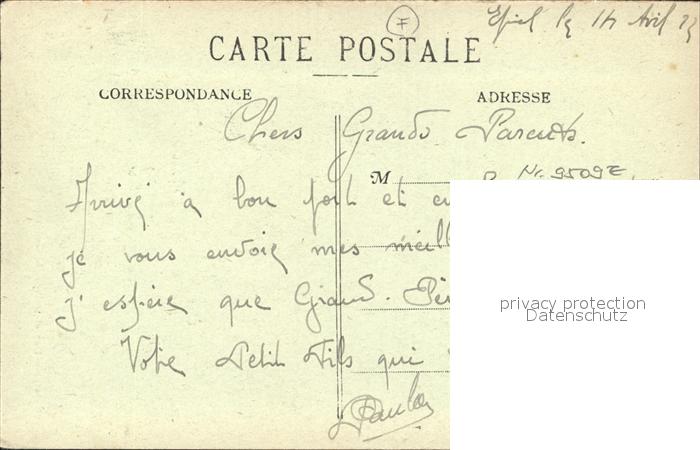 le 14 Avril
F
CARTE POSTALE
CORRESPONDANCE
ADRESSE
Chers Grands Parents.
M
Nr. 9509E
Arrivé a bon port et
je vous envoie mes meill
j'espère que Grand-Pèr
Votre Petit Fils qui
privacy protection
Datenschutz